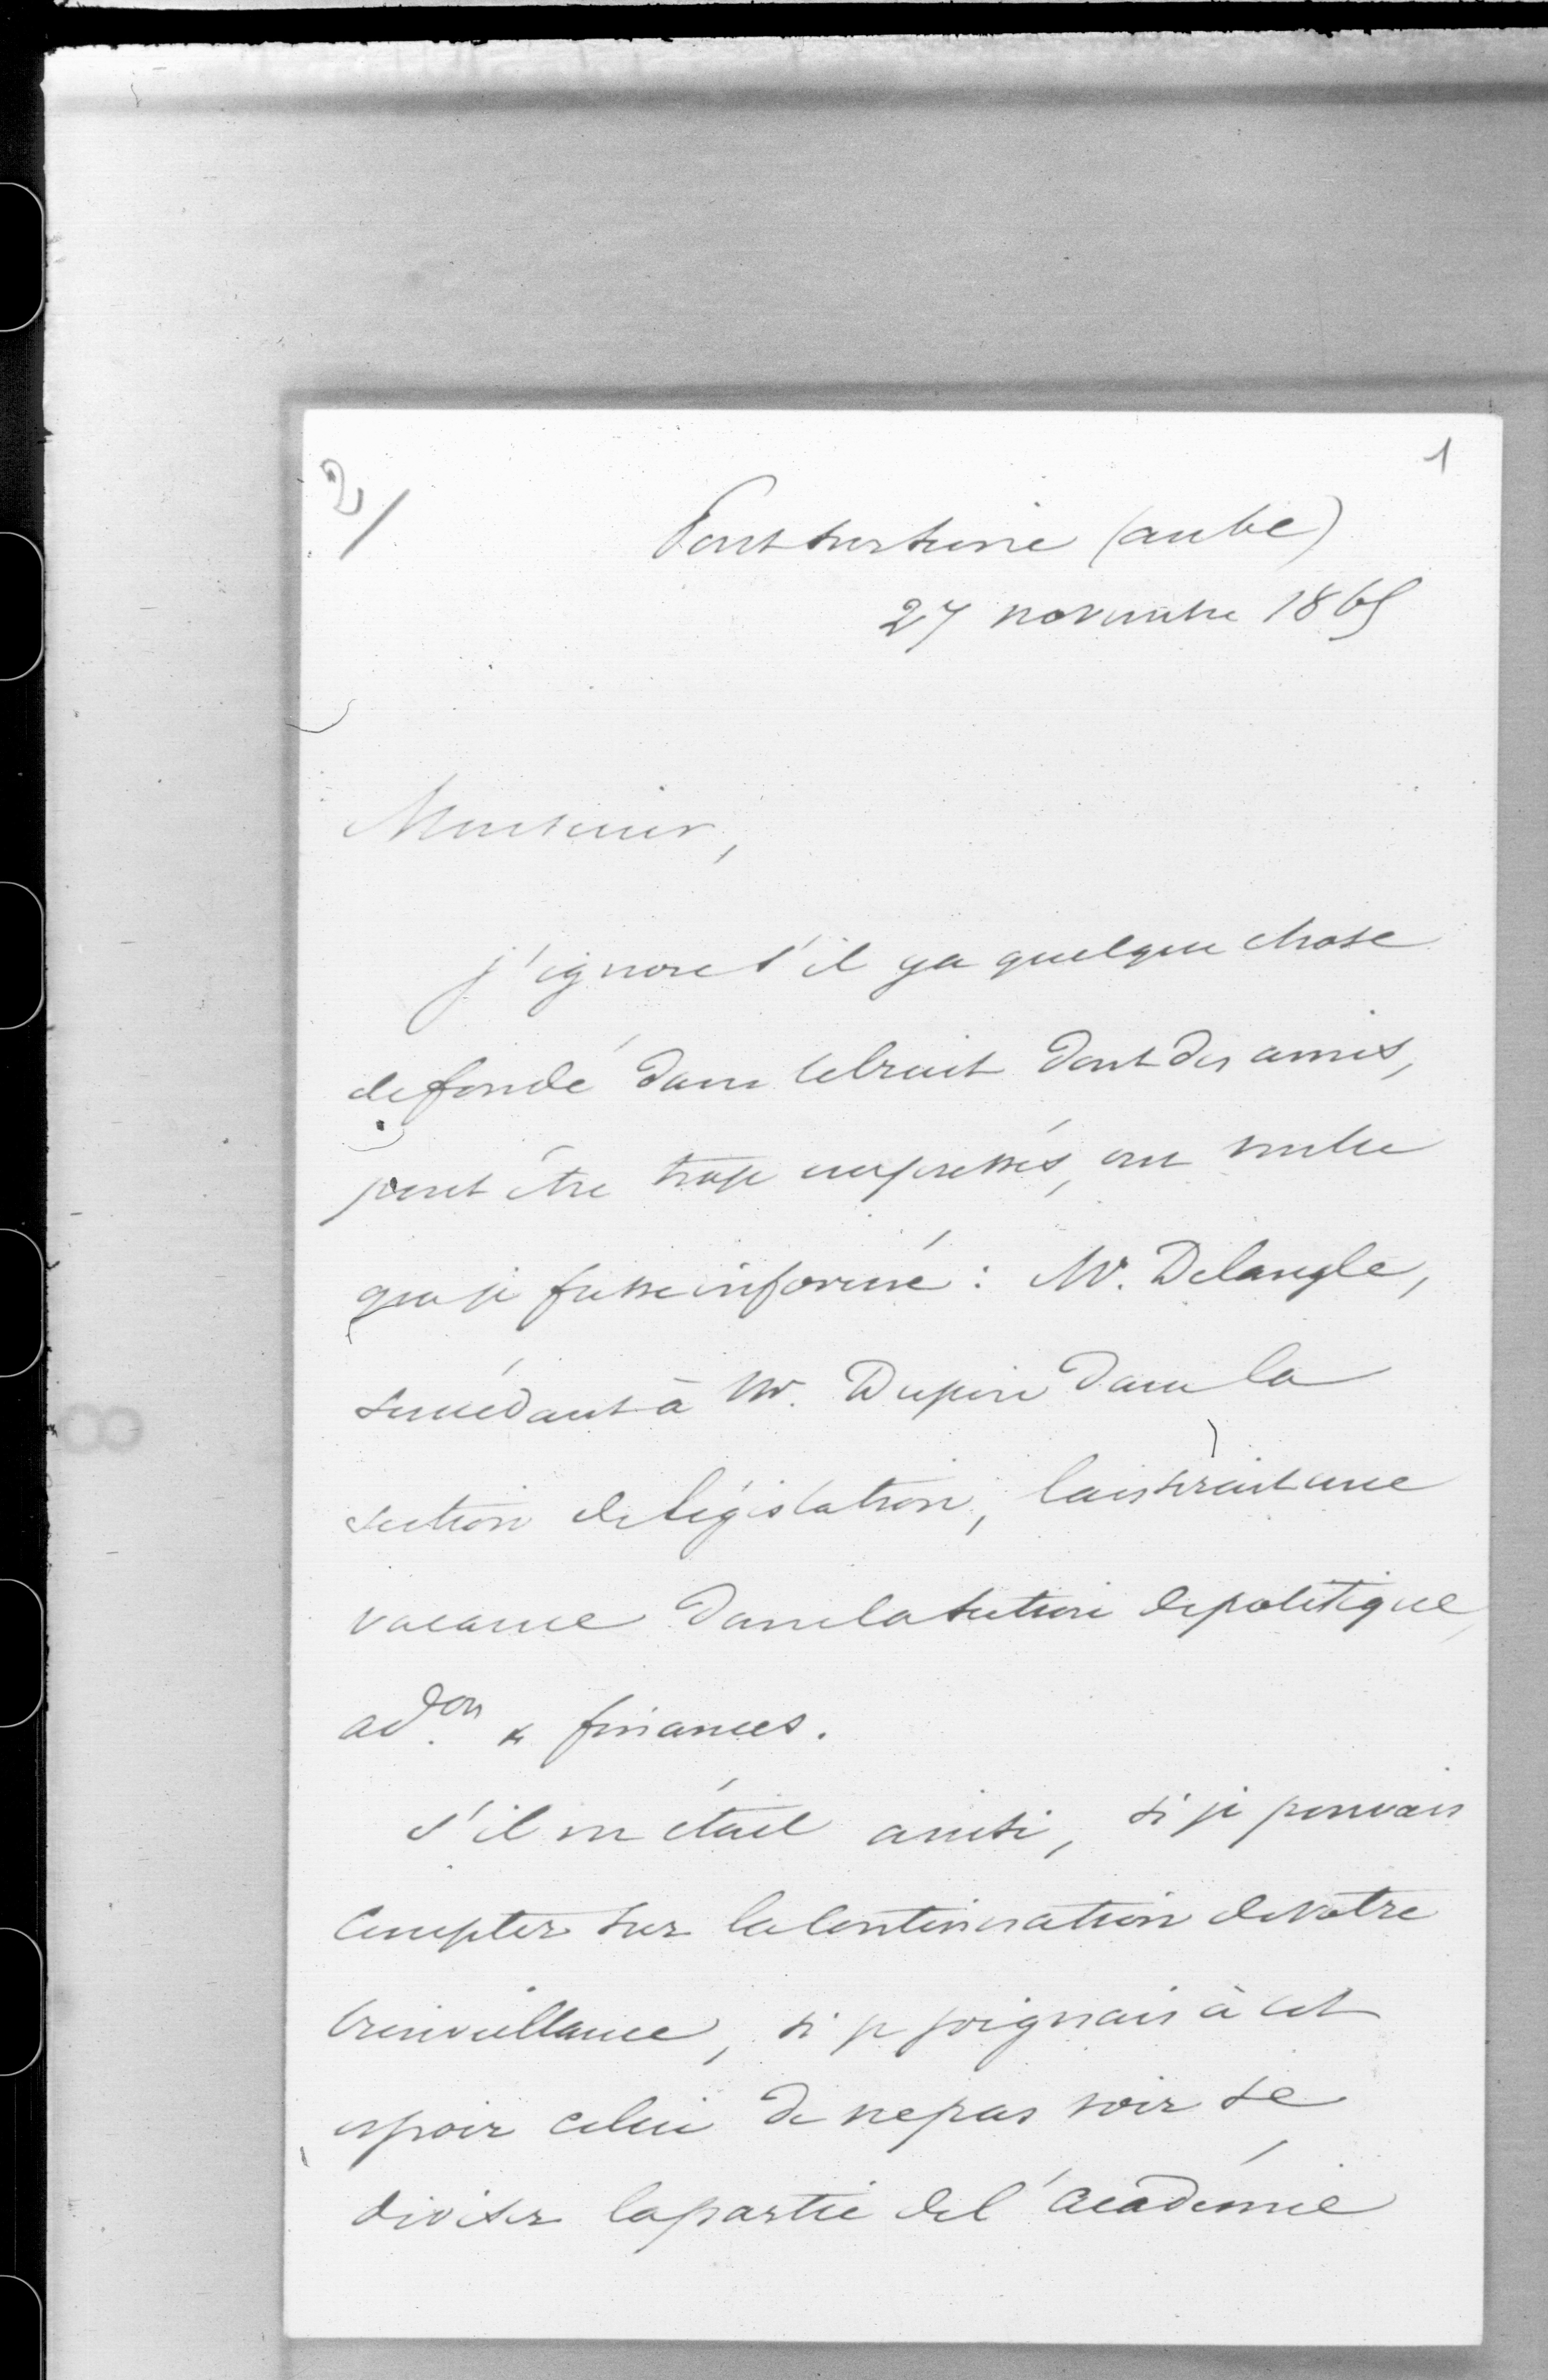 2/
1
Pont sur Seine (aube)
27 novembre 1865
Monsieur,
j'ignore s'il y a quelque chose
de fondé dans le bruit dont des amis,
peut être trop empressés, ont voulu
que je fusse informé : Mr. Delangle,
succédant à Mr. Dupin dans la
section de législation, laisserait une
vacance dans la section de politique,
adon. & finances.
s'il en était ainsi, si je pouvais
compter sur la continuation de votre
bienveillance, si je joignais à cet
espoir celui de ne pas voir se
diviser la partie de l'académie